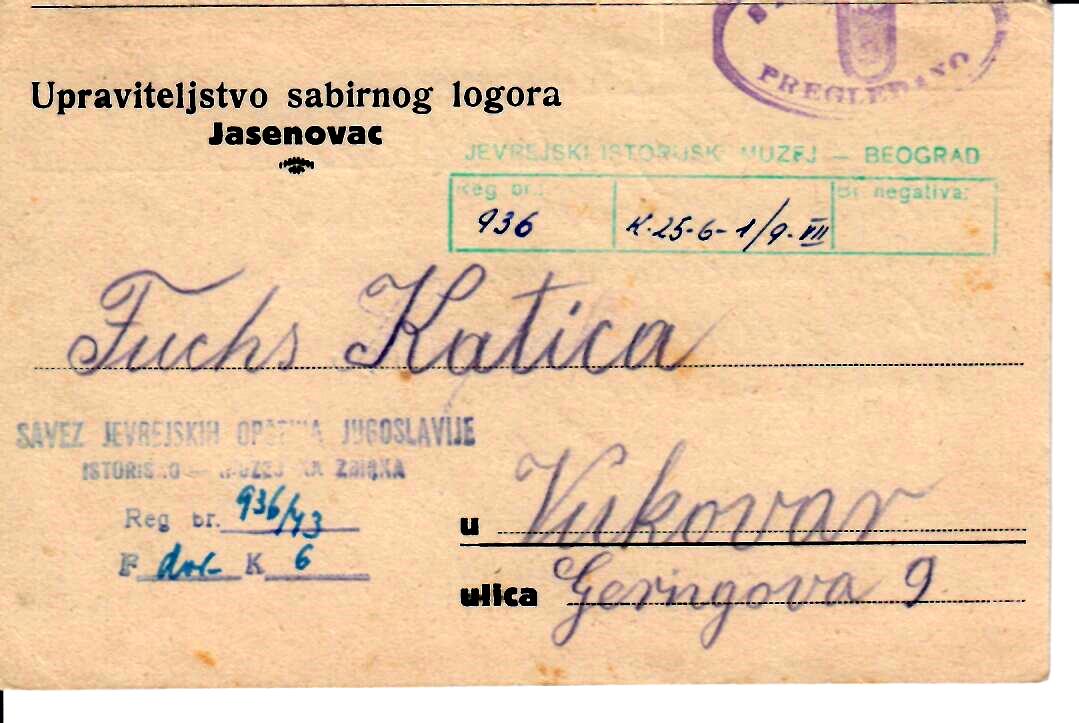 PREGLEDANO
Upraviteljstvo sabirnog logora
Jasenovac
JEVREJSKI ISTORIJSKI MUZEJ — BEOGRAD
Reg br.: Br negativa:
936 K.25-6-1/9-VII
Fuchs Katica
SAVEZ JEVREJSKIH OPŠTINA JUGOSLAVIJE
MUZEJSKA ZBIRKA
Reg br. 936/43
F dok K 6
u Vukovar
ulica Geringova 9.